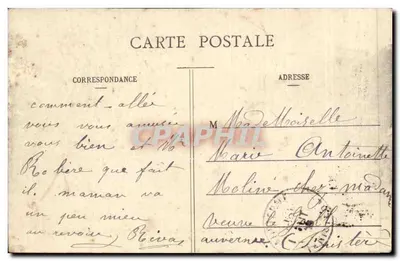 CARTE POSTALE
CORRESPONDANCE
comment allé
vous vous amusée
vous bien et
Robere que fait
il. maman va
un peu mieu
au revoir
ADRESSE
M Mademoiselle
Marie Antoinette
Moliné chez madame
veuve
auverne Finistère
CARTHAPHILIA